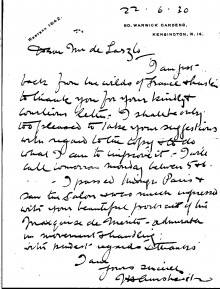 22.6.30
WESTERN 1642.
50, WARWICK GARDENS,
KENSINGTON, W.14.
Dear Mr de Laszlo
I am just
back from the wilds of France & hasten
to thank you for your kindly &
courteous letter. I shall be only
too pleased to take your suggestions
with regard to the copy & to do
what I can to improve it. I will
call tomorrow monday between 5 & 6.
I passed through Paris &
saw the Salon & was much impressed
with your beautiful portrait of the
Marquise de - admirable
in movement & handling.
With kindest regards & thanks
I am
Yours sincerely